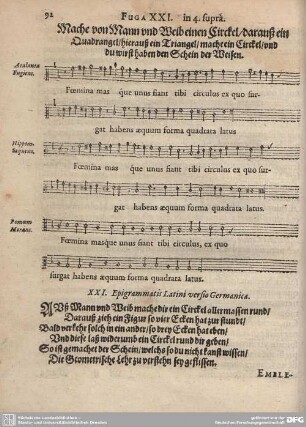 92 FUGA XXI. in 4. suprà.
Mache von Mann vnd Weib einen Circkel/ darauß ein
Quadrangel/ hierauß ein Triangel/ mache ein Circkel/ vnd
du wirst haben den Schein der Weisen.
Atalanta
Fugiens.
Fœmina mas que unus fiant tibi circulus ex quo sur-
gat habens æquum forma quadrata latus
Hippom.
Sequens.
Fœmina mas que unus fiant tibi circulus ex quo sur-
gat habens æquum forma quadrata latus.
Pomum
Morans.
Fœmina masque unus fiant tibi circulus, ex quo
surgat habens æquum forma quadrata latus.
XXI. Epigrammatis Latini versio Germanica.
AVß Mann vnd Weib mache dir ein Circkel allermassen rund/
Darauß zieh ein Figur so vier Ecken hat zur stundt/
Bald verkehr solch in ein ander/ so drey Ecken hat eben/
Vnd diese laß widerumb ein Circkel rund dir geben/
So ist gemachet der Schein/ welchs so du nicht kanst wissen/
Die Geometrische Lehr zu verstehn sey geflissen.
EMBLE-